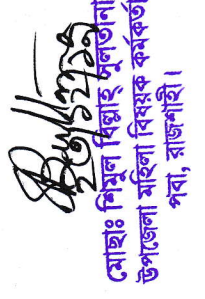 মোছাঃ শিমুল বিল্লাহ্ সুলতানা
উপজেলা মহিলা বিষয়ক কর্মকর্তা
পবা, রাজশাহী।